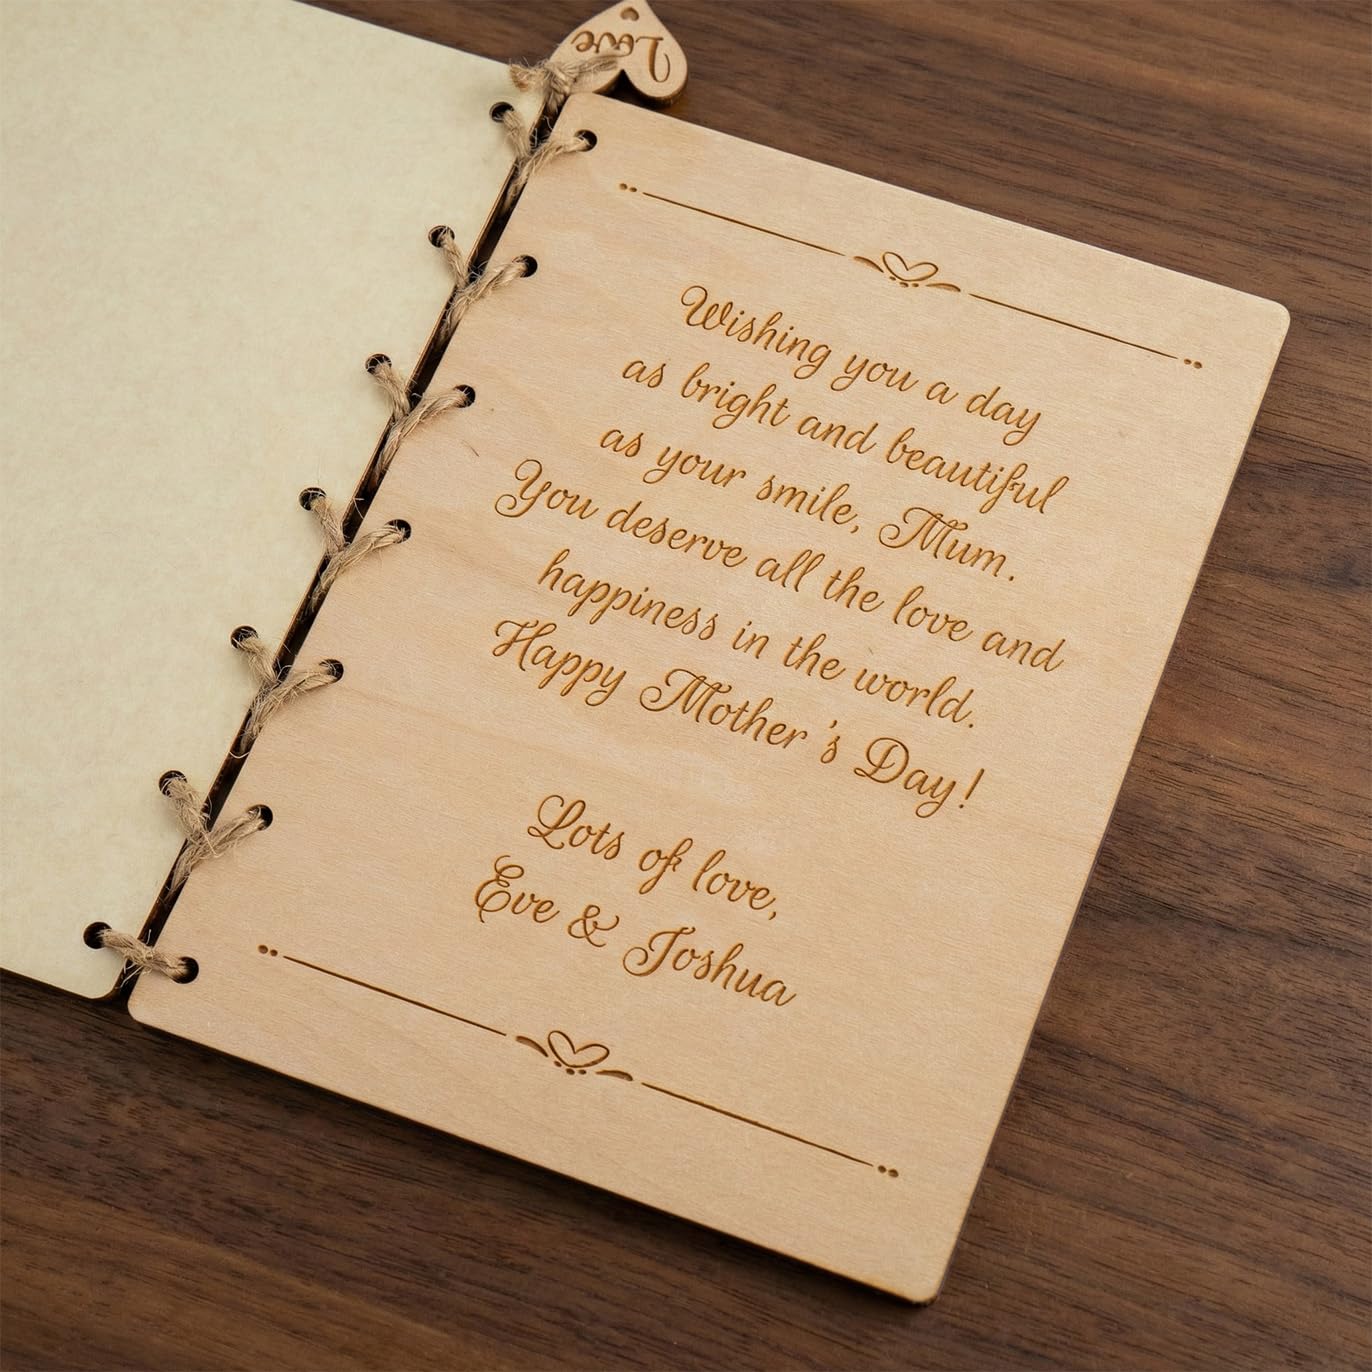 Love
Wishing you a day
as bright and beautiful
as your smile, Mum.
You deserve all the love and
happiness in the world.
Happy Mother's Day!
Lots of love,
Eve & Joshua